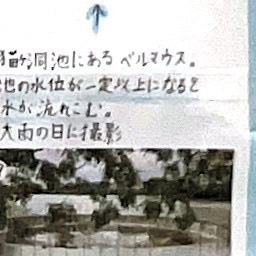 猫ヶ洞池にあるベルマウス。
池の水位が一定以上になると
水が流れこむ。
大雨の日に撮影